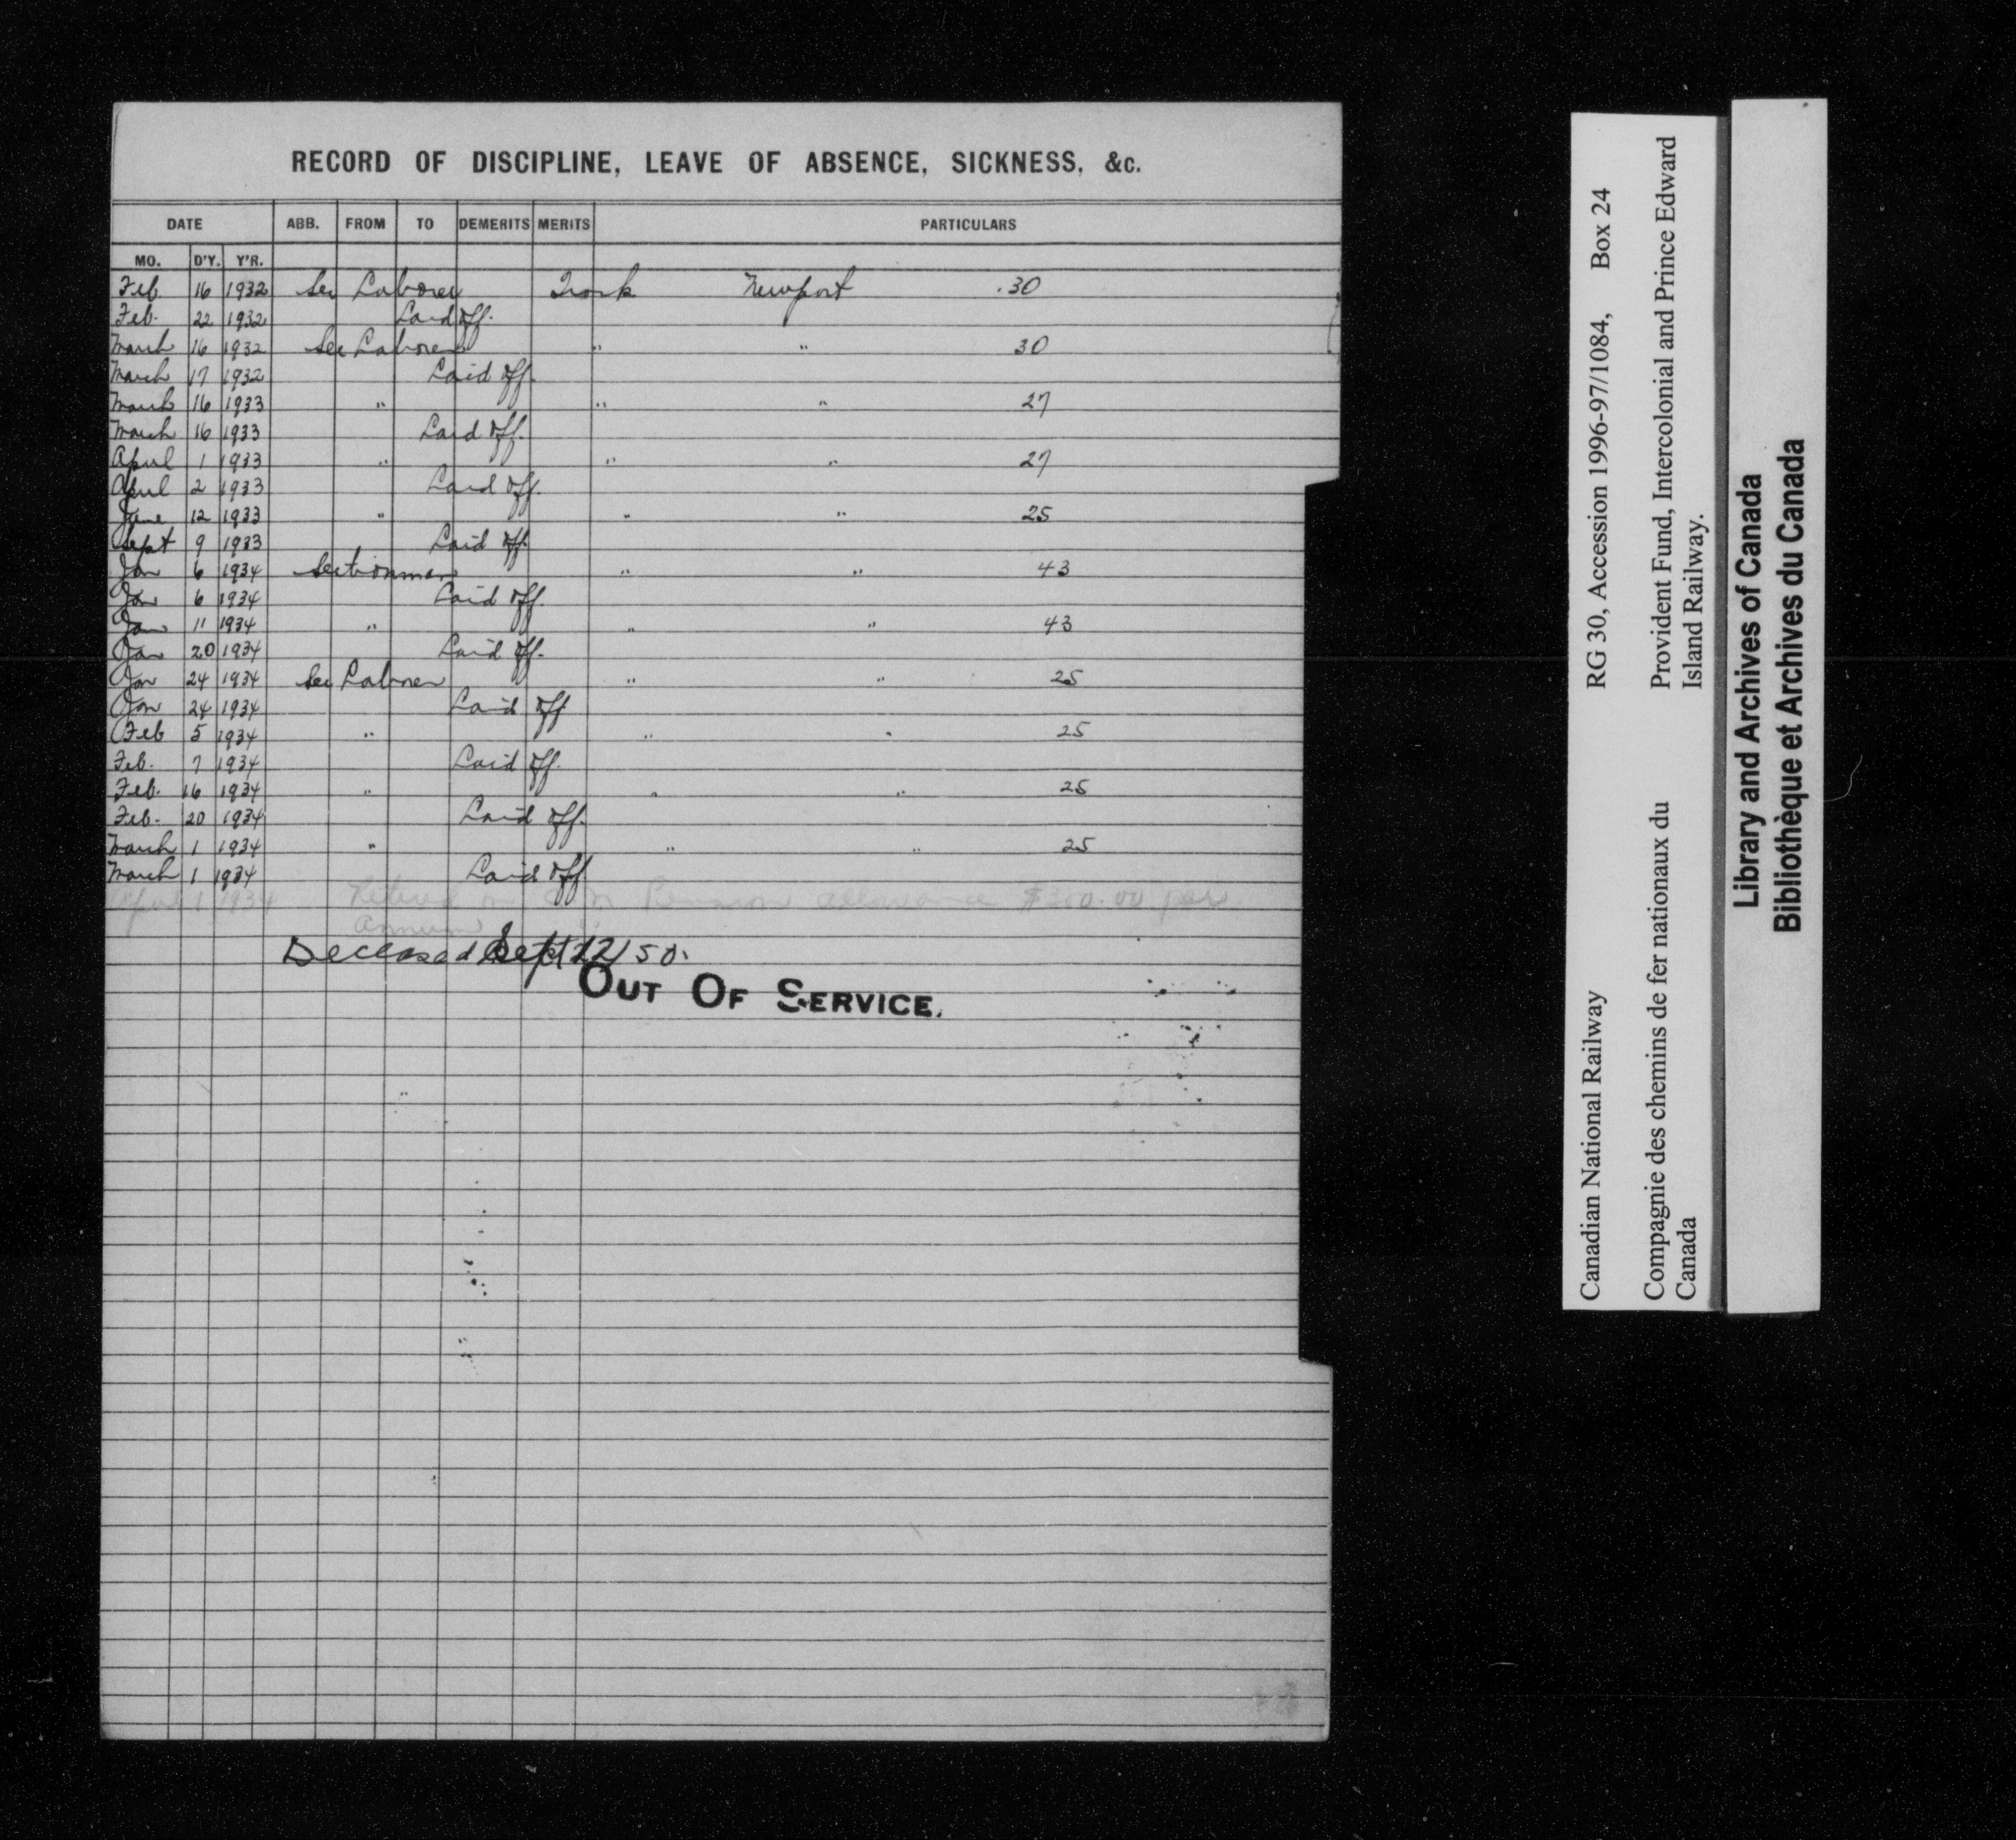 RECORD OF DISCIPLINE, LEAVE OF ABSENCE, SICKNESS, &c.
DATE ABB. FROM TO DEMERITS MERITS PARTICULARS
MO. D'Y. Y'R.
Feb. 16 1932 Sec Laborer Track Newport .30
Feb. 22 1932 Laid off.
March 16 1932 Sec Laborer " " 30
March 17 1932 Laid off.
March 16 1933 " " " 27
March 16 1933 Laid off.
April 1 1933 " " " 27
April 2 1933 Laid off.
June 12 1933 " " " 25
Sept 9 1933 Laid off.
Jan 6 1934 Sectionman " " 43
Jan 6 1934 Laid off.
Jan 11 1934 " " " 43
Jan 20 1934 Laid off.
Jan 24 1934 Sec Laborer " " 25
Jan 24 1934 Laid off
Feb 5 1934 " " " 25
Feb. 7 1934 Laid off.
Feb. 16 1934 " " " 25
Feb. 20 1934 Laid off.
March 1 1934 " " " 25
March 1 1934 Laid off
April 1 1934 Retired on Pension allowance $300.00 per
annum
Deceased Sept 22/50.
OUT OF SERVICE.
Canadian National Railway RG 30, Accession 1996-97/1084, Box 24
Compagnie des chemins de fer nationaux du Canada Provident Fund, Intercolonial and Prince Edward Island Railway.
Library and Archives of Canada
Bibliothèque et Archives du Canada